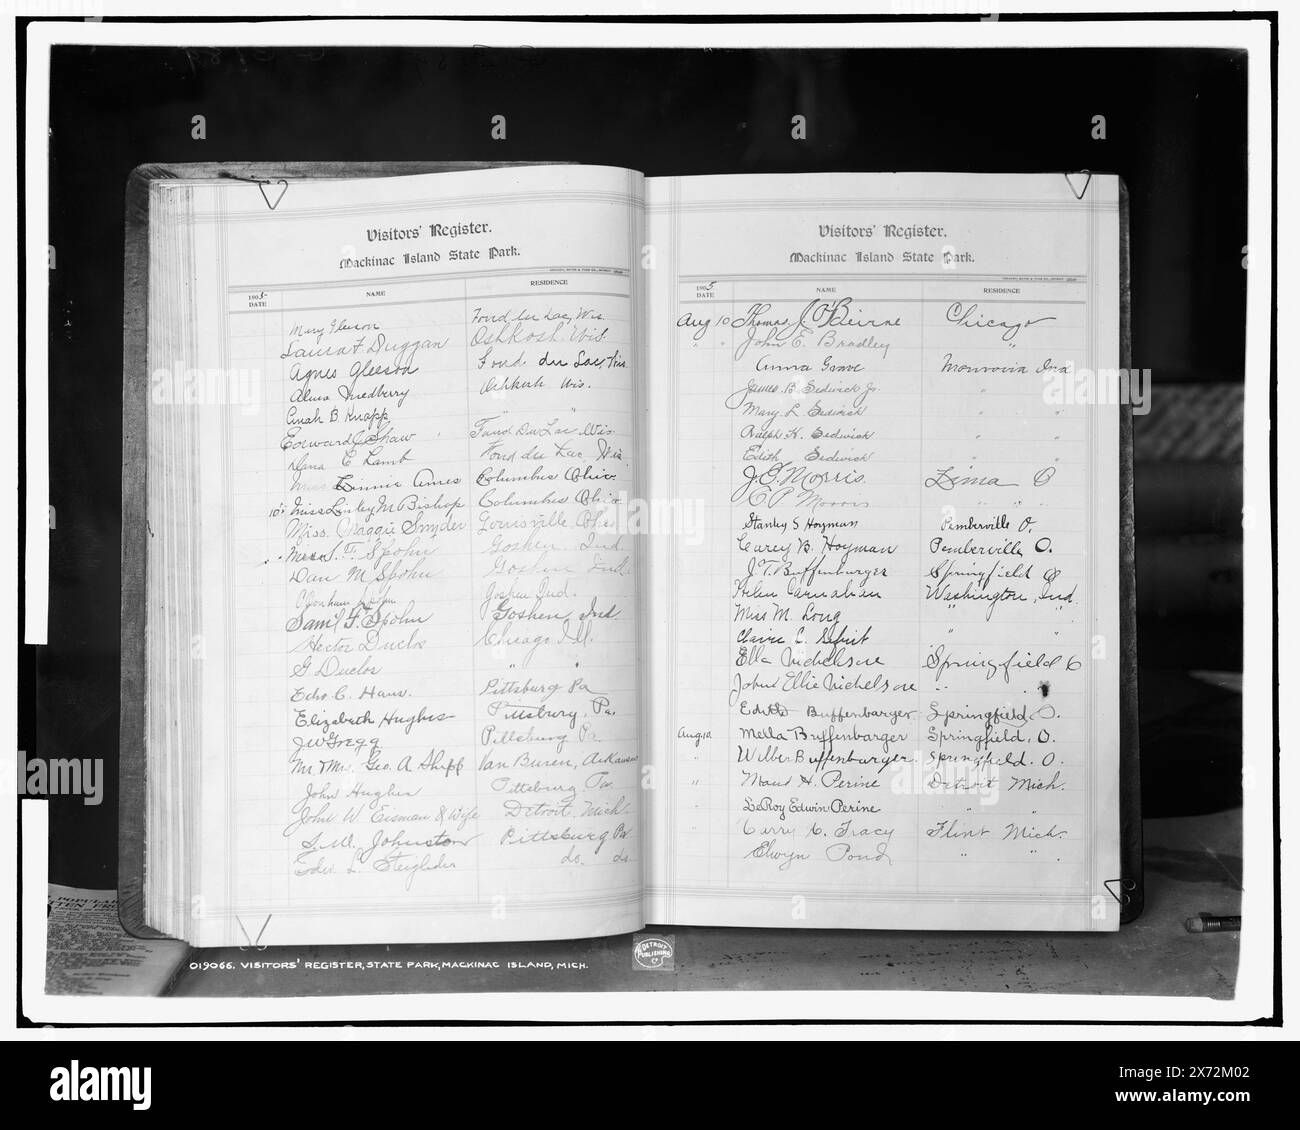 Visitors' Register.
Mackinac Island State Park.
1905 DATE NAME RESIDENCE
Mary Gleeson Fond du Lac, Wis
Laura F. Duggan Oshkosh, Wis.
Agnes Gleeson Fond du Lac, Wis
Alma Medberry Oshkosh Wis.
B Knapp " "
Edward J Shaw Fond Du Lac Wis
Dana E Lamb Fond du Lac Wis
Miss Linnie Ames Columbus Ohio
10 Miss Linley M Bishop Columbus Ohio
Miss. Maggie Snyder Louisville Ohio
" S. T. Spohn Goshen, Ind.
Dan M Spohn Goshen Ind.
Goshen Ind.
Sam'l F. Spohn Goshen, Ind
Hector Duclos Chicago Ill.
G. Duclos " "
Edw. C. Haus. Pittsburg Pa
Elizabeth Hughes Pittsburg, Pa.
JW Gregg Pittsburg Pa.
Mr & Mrs. Geo. A Shipp Van Buren, Arkansas
John Hughes Pittsburg Pa.
John W Eisman & Wife Detroit Mich.
S. W. Johnston Pittsburg Pa
Edw. L. Steiglider do. do.
Visitors' Register.
Mackinac Island State Park.
1905 DATE NAME RESIDENCE
Aug 10 Thomas J. O'Beirne Chicago
" " John E. Bradley "
Anna Grove Monrovia Ind
James B. Sedwick Jr. " "
Mary L Sedwick " "
Ralph K. Sedwick " "
Edith Sedwick " "
J. G. Morris. Lima O
C P Morris " "
Stanley S Hoyman Pemberville O.
Carey B. Hoyman Pemberville O.
J. T. Buffenbarger Springfield O
Helen Carnahan Washington, Ind.
Miss M. Long " "
Claire L. " "
Ella Nichelson Springfield O
John Ellie Nichelson " "
Edith Buffenbarger Springfield, O.
Aug 10 Mella Buffenbarger Springfield, O.
" Wilber Buffenbarger. Springfield. O.
" Maud H. Perine Detroit Mich.
" LeRoy Edwin Perine " "
" Carry C. Tracy Flint Mich.
Elwyn Pond " "
019066. VISITORS' REGISTER, STATE PARK, MACKINAC ISLAND, MICH.
DETROIT PUBLISHING CO
POPULAR
TEN
a
alamy
Image ID: 2X72M02
www.alamy.com